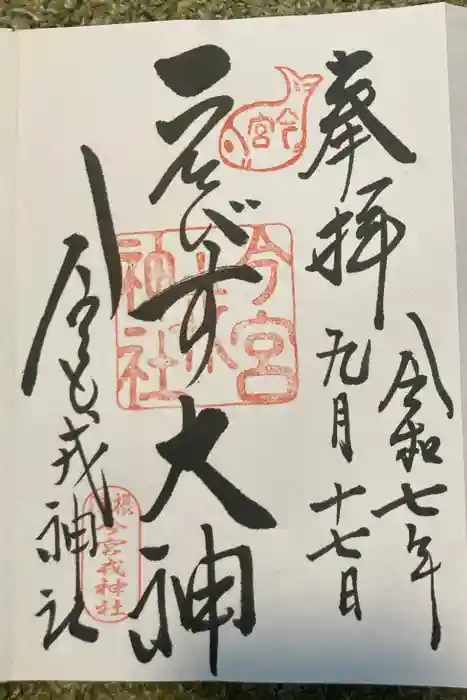 奉拝
令和七年
九月十七日
今宮
ゑびす大神
今宮戎神社
今宮戎神社
摂 今宮戎神社